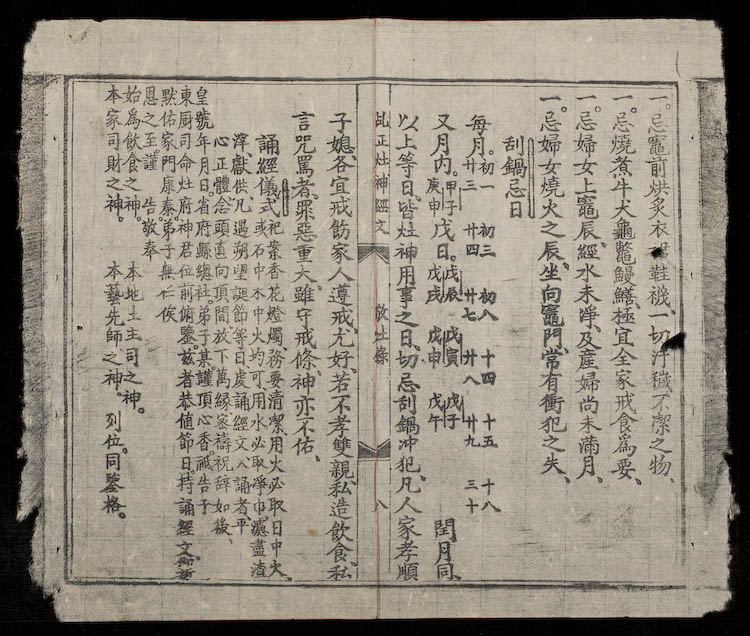 一。忌竈前烘炙衣裙鞋襪、一切汙穢不潔之物、
一。忌燒煮牛犬龜鼈鰻鱔、極宜全家戒食爲要、
一。忌婦女上竈辰、經水未淨、及產婦尚未滿月、
一。忌婦女燒火之辰、坐向竈門、常有衝犯之失、
刮鍋忌日
每月。初一 初三 初八 十四 十五 十八
廿三 廿四 廿七 廿八 廿九 三十
又月内。甲子 庚申 戊日。戊辰 戊寅 戊子 戊戌 戊申 戊午 閏月同、
以上等日、皆灶神用事之日、切忌刮鍋冲犯、凡人家孝順
正灶神經文 敬灶條 八
子媳、各宜戒飭家人遵戒尤好、若不孝雙親、私造飲食、私
言咒罵者、罪惡重大、雖守戒條、神亦不佑、
誦經儀式 祀案香花燈燭、務要清潔、用火必取日中火、
或石中木中火均可、用水必取净巾濾盡渣
滓獻供、凡遇朔望誕節等日、虔誦經文、入誦者、平
心正體、念頭直向頂間、放下萬縁、密禱祝辭如後、
皇號 年月日、省府縣總社弟子某、謹頂心香、祇告于
東厨司命灶府神君位前、俯鑒、兹者恭值節日、持誦經文、祈
默佑家門康泰、弟子無任俟
恩之至、謹 告敬奉
始爲飲食之神。 本地土主司之神。
本家司財之神。 本藝先師之神。 列位。同鑒格。